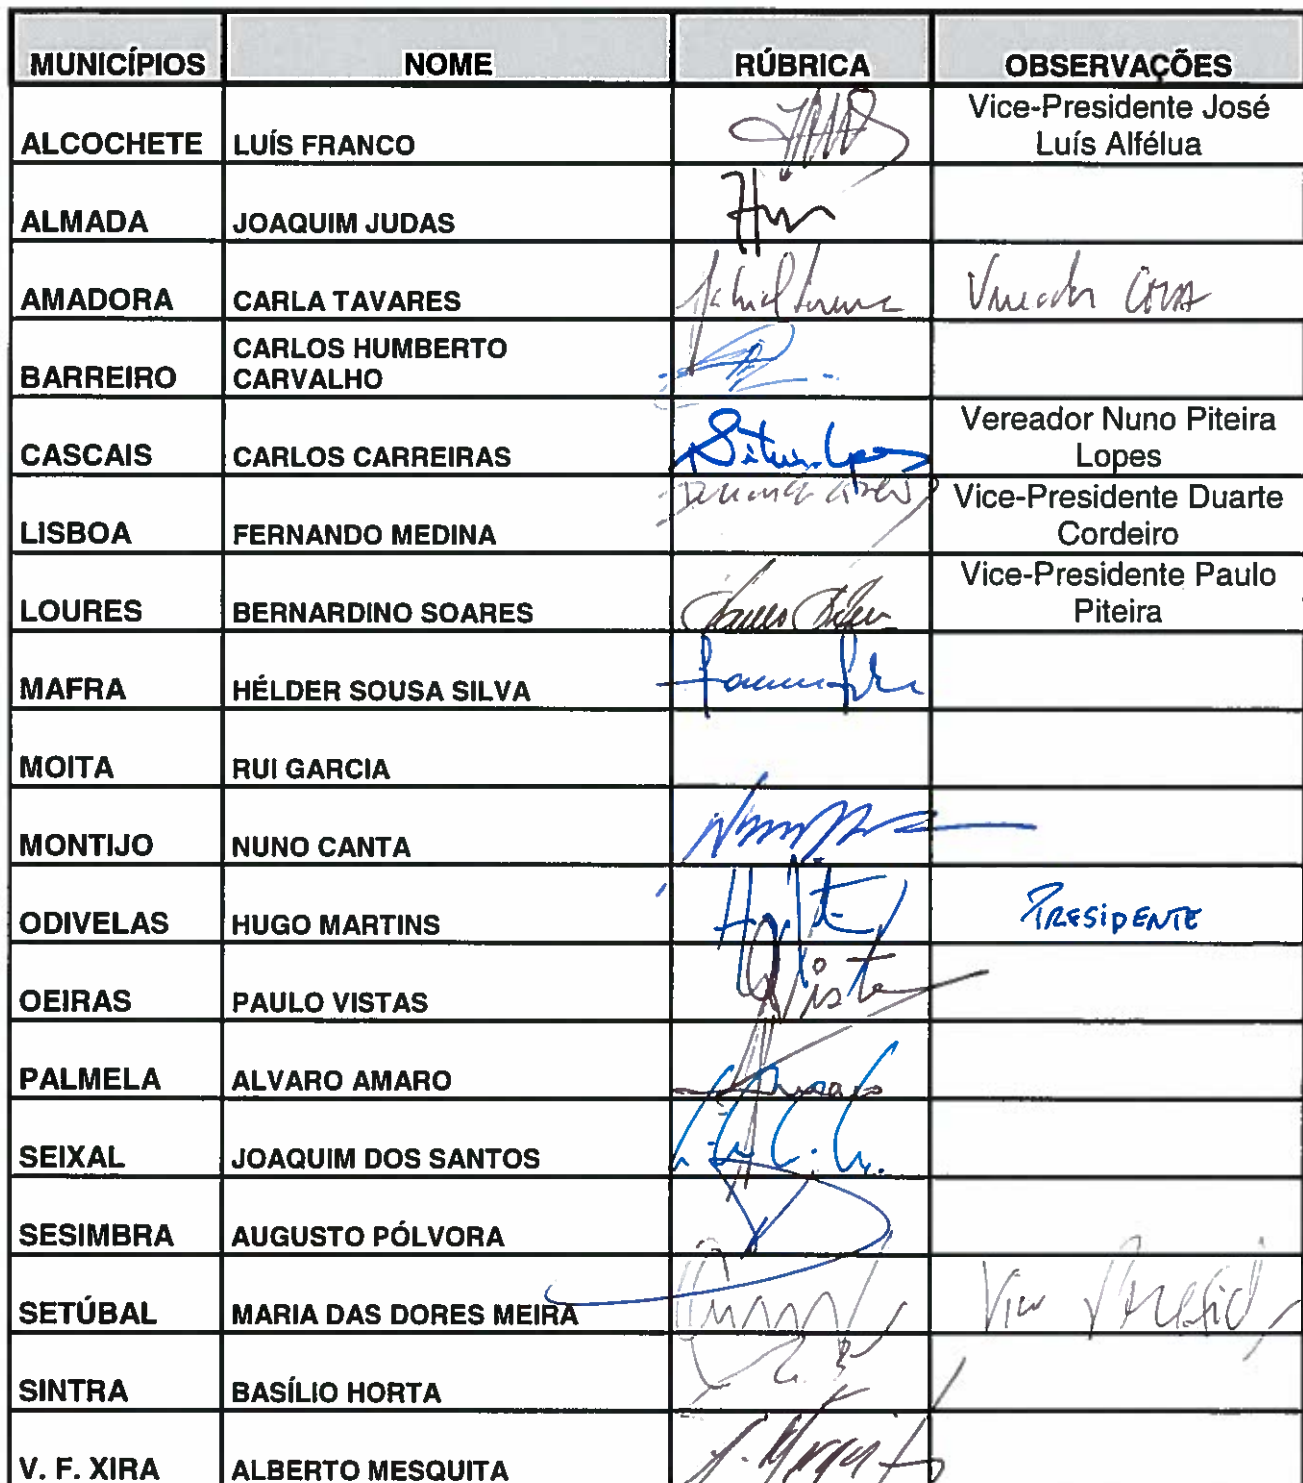 MUNICÍPIOS NOME RÚBRICA OBSERVAÇÕES
ALCOCHETE LUÍS FRANCO Vice-Presidente José
Luís Alfélua
ALMADA JOAQUIM JUDAS
AMADORA CARLA TAVARES
BARREIRO CARLOS HUMBERTO
CARVALHO
CASCAIS CARLOS CARREIRAS Vereador Nuno Piteira
Lopes
LISBOA FERNANDO MEDINA Vice-Presidente Duarte
Cordeiro
LOURES BERNARDINO SOARES Vice-Presidente Paulo
Piteira
MAFRA HÉLDER SOUSA SILVA
MOITA RUI GARCIA
MONTIJO NUNO CANTA
ODIVELAS HUGO MARTINS PRESIDENTE
OEIRAS PAULO VISTAS
PALMELA ALVARO AMARO
SEIXAL JOAQUIM DOS SANTOS
SESIMBRA AUGUSTO PÓLVORA
SETÚBAL MARIA DAS DORES MEIRA
SINTRA BASÍLIO HORTA
V. F. XIRA ALBERTO MESQUITA